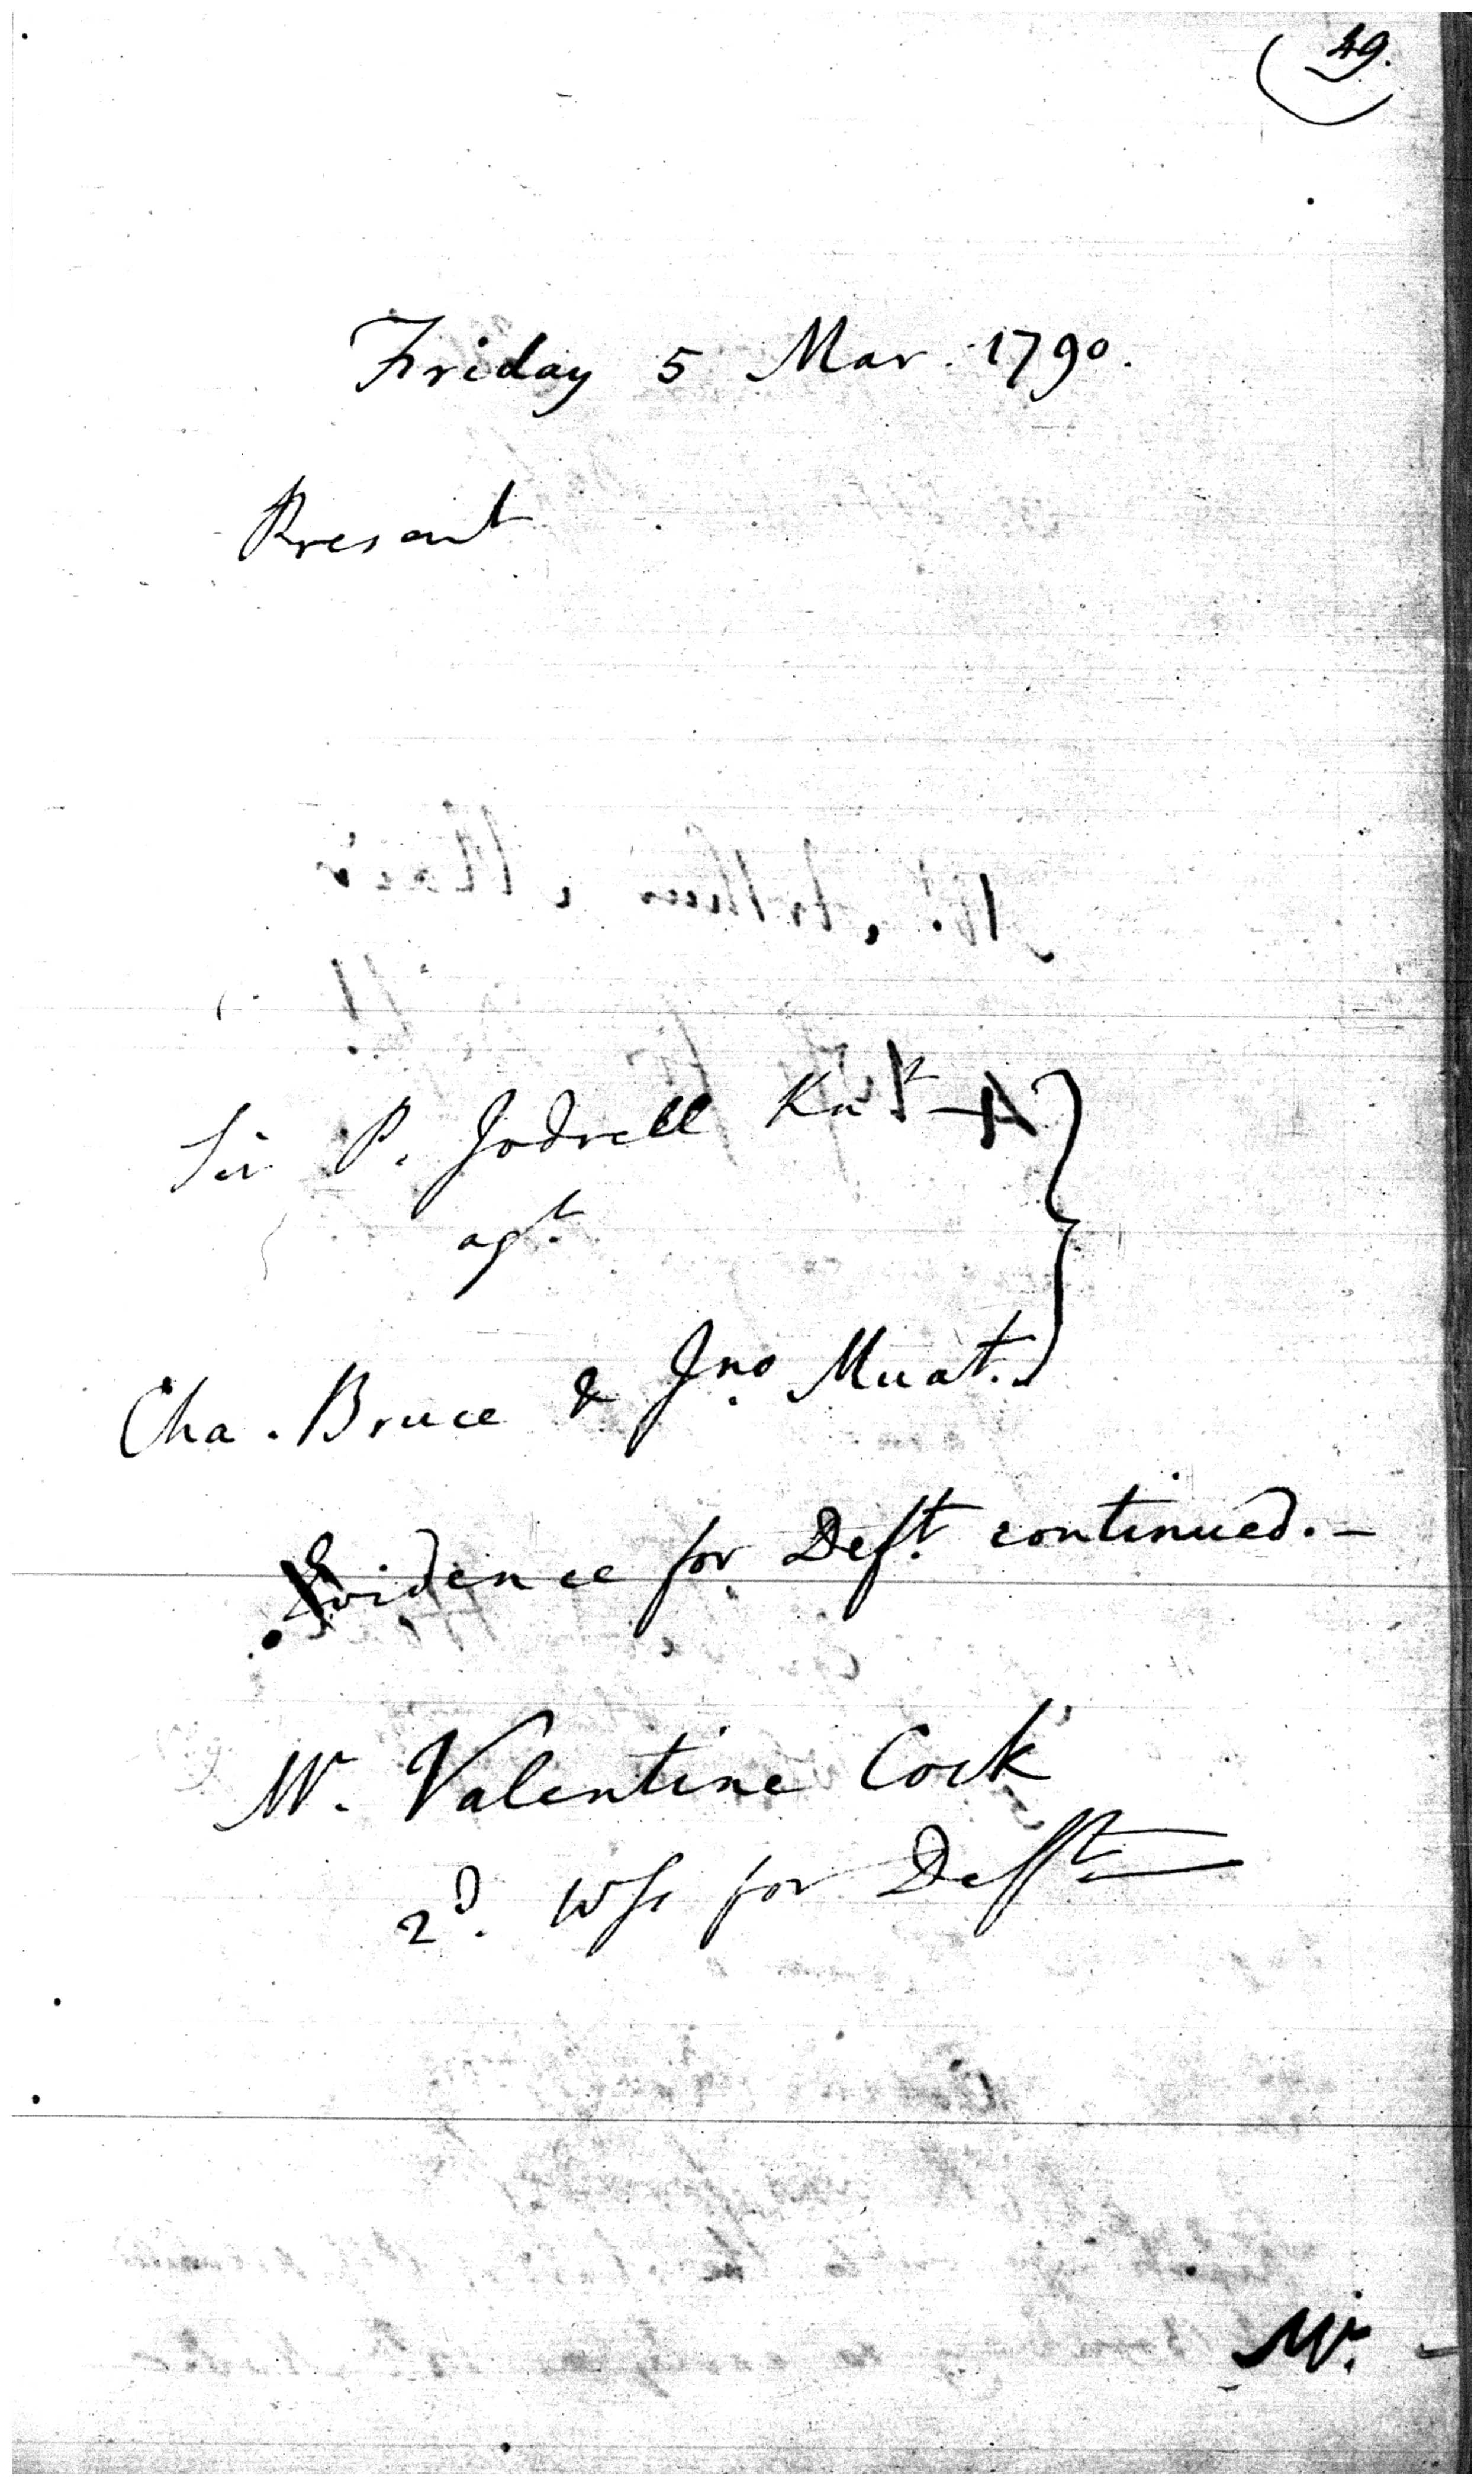 49.
Friday 5 Mar. 1790.
Present
Sir P. Jodrell Knt
agt.
Cha. Bruce & Jno. Muat.
Evidence for Deft. continued. —
Mr. Valentine Cock
2d. Wss for Deft.
Mr.